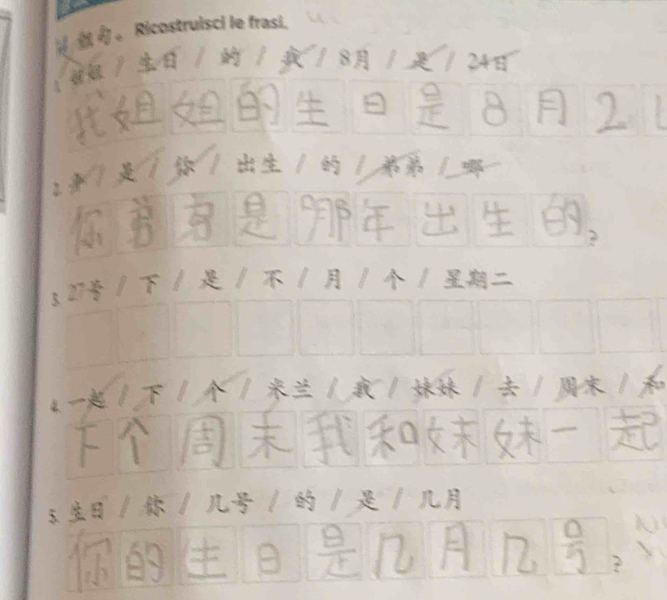 组句。 Ricostruisci le frasi.
1. 姐姐 / 生日 / 的 / 我 / 8月 / 是 / 24日
我姐姐的生日是8月2
2. 年 / 是 / 你 / 出生 / 的 / 弟弟 / 哪
你弟弟是哪年出生的?
3. 27号 / 下 / 是 / 不 / 月 / 个 / 星期二
4. 一起 / 下 / 个 / 米兰 / 我 / 妹妹 / 去 / 周末 / 和
下个周末我和妹妹一起
5. 生日 / 你 / 几号 / 的 / 是 / 几月
你的生日是几月几号?